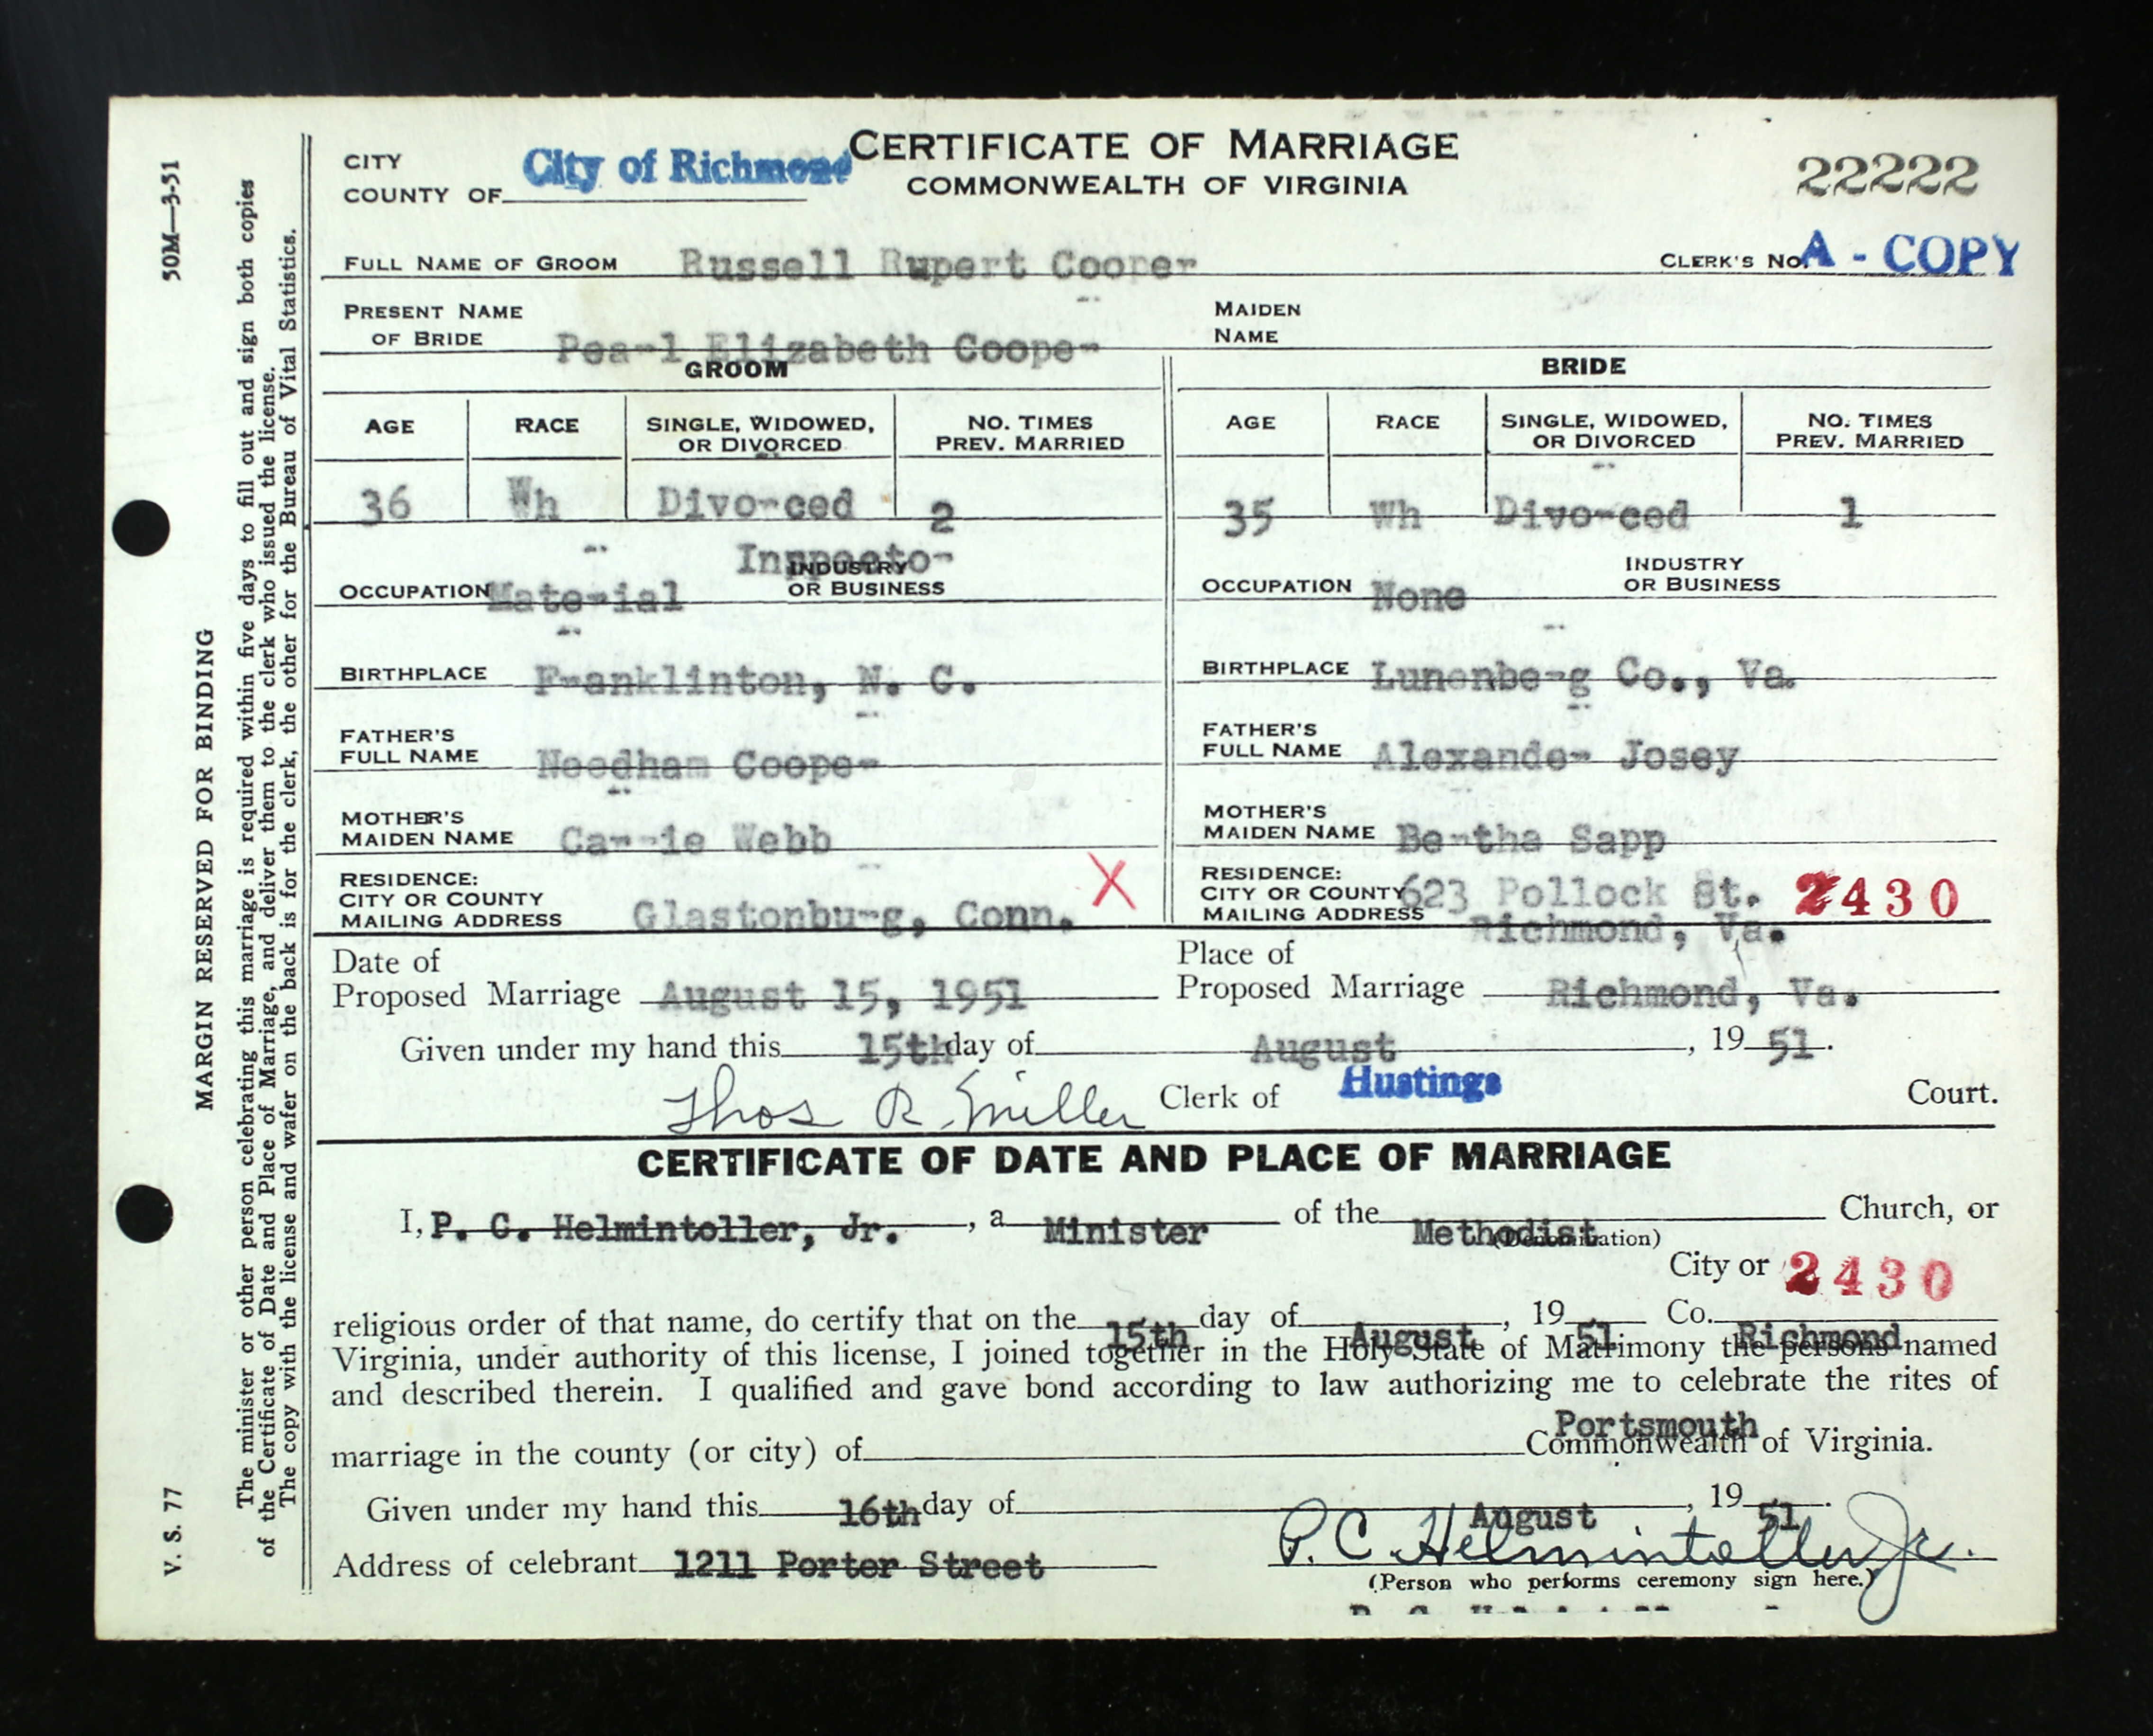 CITY
COUNTY OF City of Richmond
CERTIFICATE OF MARRIAGE
COMMONWEALTH OF VIRGINIA
22222
FULL NAME OF GROOM Russell Rupert Cooper
CLERK'S No. A - COPY
PRESENT NAME
OF BRIDE Pearl Elizabeth Cooper
MAIDEN
NAME
GROOM BRIDE
AGE RACE SINGLE, WIDOWED, OR DIVORCED NO. TIMES PREV. MARRIED AGE RACE SINGLE, WIDOWED, OR DIVORCED NO. TIMES PREV. MARRIED
36 Wh Divorced 2 35 Wh Divorced 1
OCCUPATION Material Inspector INDUSTRY OR BUSINESS
OCCUPATION None INDUSTRY OR BUSINESS
BIRTHPLACE Franklinton, N. C.
BIRTHPLACE Lunenberg Co., Va.
FATHER'S
FULL NAME Needham Cooper
FATHER'S
FULL NAME Alexander Josey
MOTHER'S
MAIDEN NAME Carrie Webb
MOTHER'S
MAIDEN NAME Bertha Sapp
RESIDENCE:
CITY OR COUNTY
MAILING ADDRESS Glastonburg, Conn. X
RESIDENCE:
CITY OR COUNTY 623 Pollock St. 2430
MAILING ADDRESS Richmond, Va.
Date of
Proposed Marriage August 15, 1951
Place of
Proposed Marriage Richmond, Va.
Given under my hand this 15th day of August, 19 51.
Thos R. Miller Clerk of Hustings Court.
CERTIFICATE OF DATE AND PLACE OF MARRIAGE
I, P. C. Helmintoller, Jr., a Minister of the Methodist Church, or
(Denomination)
City or 2430
religious order of that name, do certify that on the 15th day of August, 19 51 Co. Richmond
Virginia, under authority of this license, I joined together in the Holy State of Matrimony the persons named
and described therein. I qualified and gave bond according to law authorizing me to celebrate the rites of
marriage in the county (or city) of Portsmouth Commonwealth of Virginia.
Given under my hand this 16th day of August, 19 51.
Address of celebrant 1211 Porter Street
P. C. Helmintoller Jr.
(Person who performs ceremony sign here.)
V. S. 77
50M—3-51
MARGIN RESERVED FOR BINDING
The minister or other person celebrating this marriage is required within five days to fill out and sign both copies
of the Certificate of Date and Place of Marriage, and deliver them to the clerk who issued the license.
The copy with the license and wafer on the back is for the clerk, the other for the Bureau of Vital Statistics.